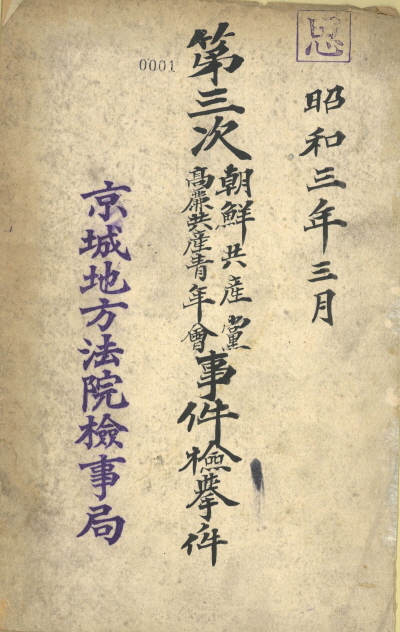 思
昭和三年三月
第三次
朝鮮共産黨
高麗共産青年會
事件檢擧件
0001
京城地方法院檢事局